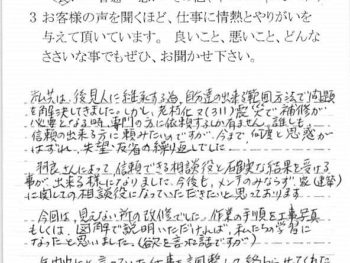 3 お客様の声を聞くほど、仕事に情熱とやりがいを
与えて頂いています。 良いこと、悪いこと、どんな
ささいな事でもぜひ、お聞かせ下さい。
は、後見人に継承する為、自達の出来る範囲方法で問題
を解決してきました。しかし、老朽化や(3.11)震災で補修が
必要となる時、専門の方に依頼するしか有ません。誰もも
信頼の出来る方に頼みたいのですが、今まで何度も思惑が
はずれ、失望・反省の繰り返しでした。
羽良さんによって、信頼できる相談役と確実な結果を受ける
事が出来る様になりました。今後も、メンテのみならず、家(建築)
に関しての相談役になっていただきたいと思っております。
今回は、見えない所の改修でした。作業の手順を工事写真
もしくは、図解で説明いただければ、私たちが学習に
なったと思いました。(欲を言えば話ですが)
年中にと言っていた仕事を調整して終わらせてくれた